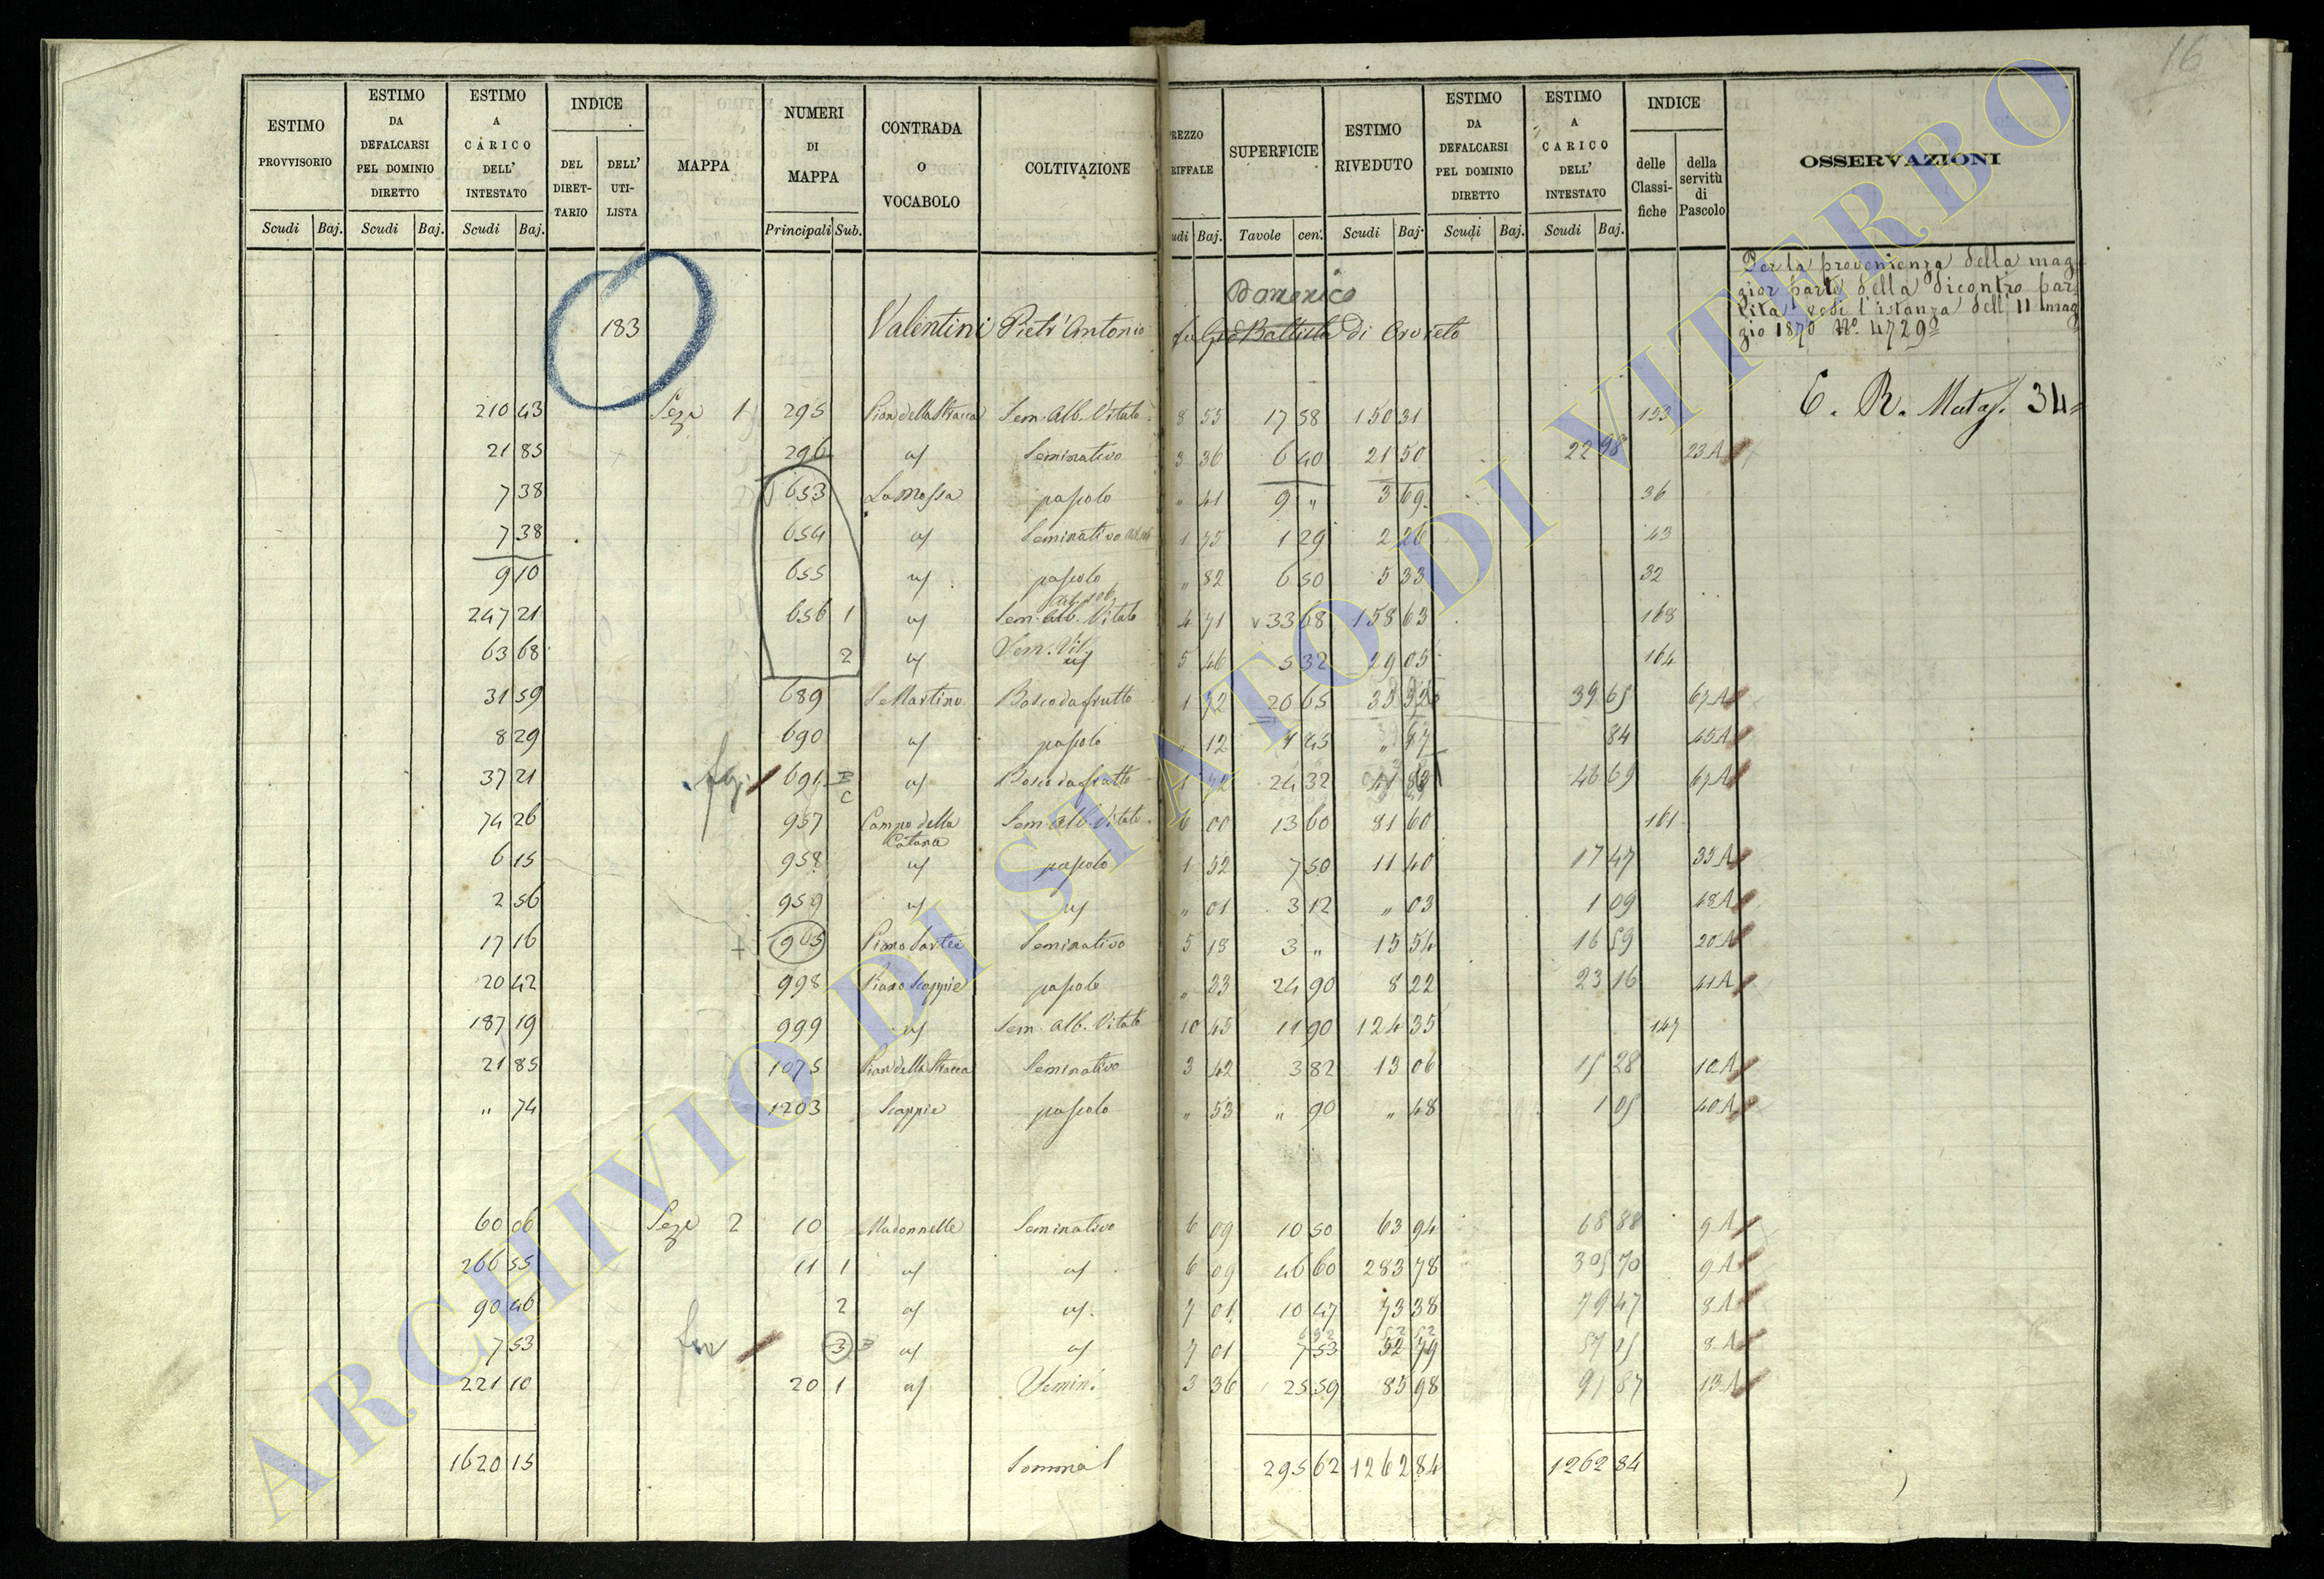 16
ESTIMO PROVVISORIO | ESTIMO DA DEFALCARSI PEL DOMINIO DIRETTO | ESTIMO A CARICO DELL' INTESTATO | INDICE DEL DIRETTARIO | DELL' UTILISTA | MAPPA | NUMERI DI MAPPA | CONTRADA O VOCABOLO | COLTIVAZIONE | REZZO RIFFALE | SUPERFICIE | ESTIMO RIVEDUTO | ESTIMO DA DEFALCARSI PEL DOMINIO DIRETTO | ESTIMO A CARICO DELL' INTESTATO | INDICE delle Classifiche | della servitù di Pascolo | OSSERVAZIONI
Scudi Baj. Scudi Baj. Scudi Baj. Principali Sub. udi Baj. Tavole cen. Scudi Baj. Scudi Baj. Scudi Baj.
Per la provenienza della mag
gior parte della dicontro par
tita vedi l'istanza dell 11 mag
gio 1870 No. 4729
Domenico
183 Valentini Pietr'Antonio fu Gio Battista di Orvieto
E. R. 34
210 43 Sez. 1 295 Pian della Stracca Sem. Alb. Vitato 8 55 17 58 150 31 153
21 85 296 Seminativo 3 36 6 40 21 50 22 98 23 A
7 38 653 La Mossa pascolo " 41 9 " 3 69 36
7 38 654 Seminativo 1 75 1 29 2 26 43
9 10 655 pascolo " 82 6 50 5 33 32
247 21 656 1 Sem. Alb. Vitato 4 71 33 68 158 63 168
63 68 2 Sem. Vit. 5 46 5 32 29 05 164
31 59 689 S. Martino Bosco da frutto 1 72 20 65 39 65 67 A
8 29 690 pascolo 12 84 45 A
37 21 691 B C Bosco da frutto 1 72 24 32 48 69 67 A
74 26 957 Campo della Catana Sem. Alb. Vitato 6 00 13 60 81 60 161
6 15 958 pascolo 1 52 7 50 11 40 17 47 35 A
2 56 959 " 01 3 12 " 03 1 09 48 A
17 16 Seminativo 5 18 3 " 15 54 16 59 20 A
20 42 998 Piano Scappie pascolo " 33 24 90 8 22 23 16 41 A
187 19 999 Sem. Alb. Vitato 10 45 11 90 124 35 147
21 85 1075 Pian della Stracca Seminativo 3 42 3 82 13 06 15 28 10 A
" 74 1203 Scappie pascolo " 53 " 90 " 48 1 05 40 A
60 06 Sez. 2 10 Madonnelle Seminativo 6 09 10 50 63 94 68 88 9 A
266 55 11 1 6 09 46 60 283 78 305 70 9 A
90 46 2 7 01 10 47 73 38 79 47 8 A
7 53 3 B 7 01 7 53 52 79 57 05 8 A
221 10 20 1 Semin. 3 36 25 59 85 98 91 87 13 A
1620 15 Somma 295 62 1262 84 1262 84
ARCHIVIO DI STATO DI VITERBO